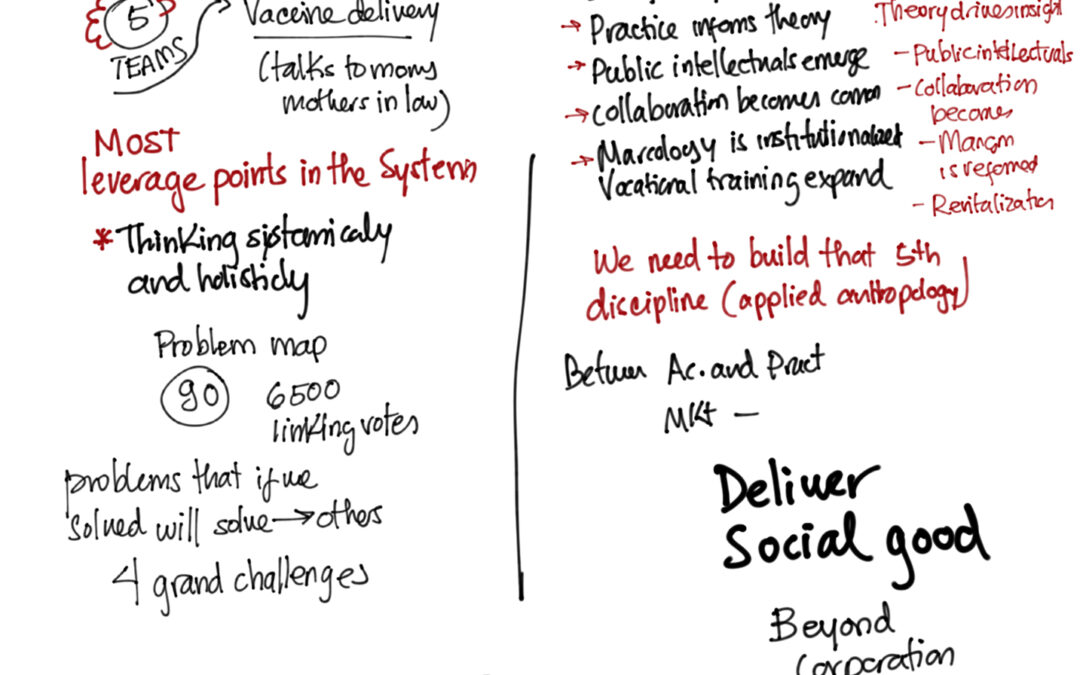 5
TEAMS
Vaccine delivery
(talks to moms
mothers in law)
MOST
leverage points in the System
* Thinking sistamicaly
and holisticly
Problem map
90
6500
linking votes
problems that if we
solved will solve → others
4 grand challenges
→ Practice informs theory
→ Public intellectuals emerge
→ collaboration becomes common
→ Marcology is institutionalized
Vocational training expand
Theory drives insight
- Public intellectuals
- Collaboration
becomes
is reformed
- Revitalization
We need to build that 5th
discipline (applied anthropology)
Between Ac. and Pract
MKt —
Deliver
Social good
Beyond
Corporation